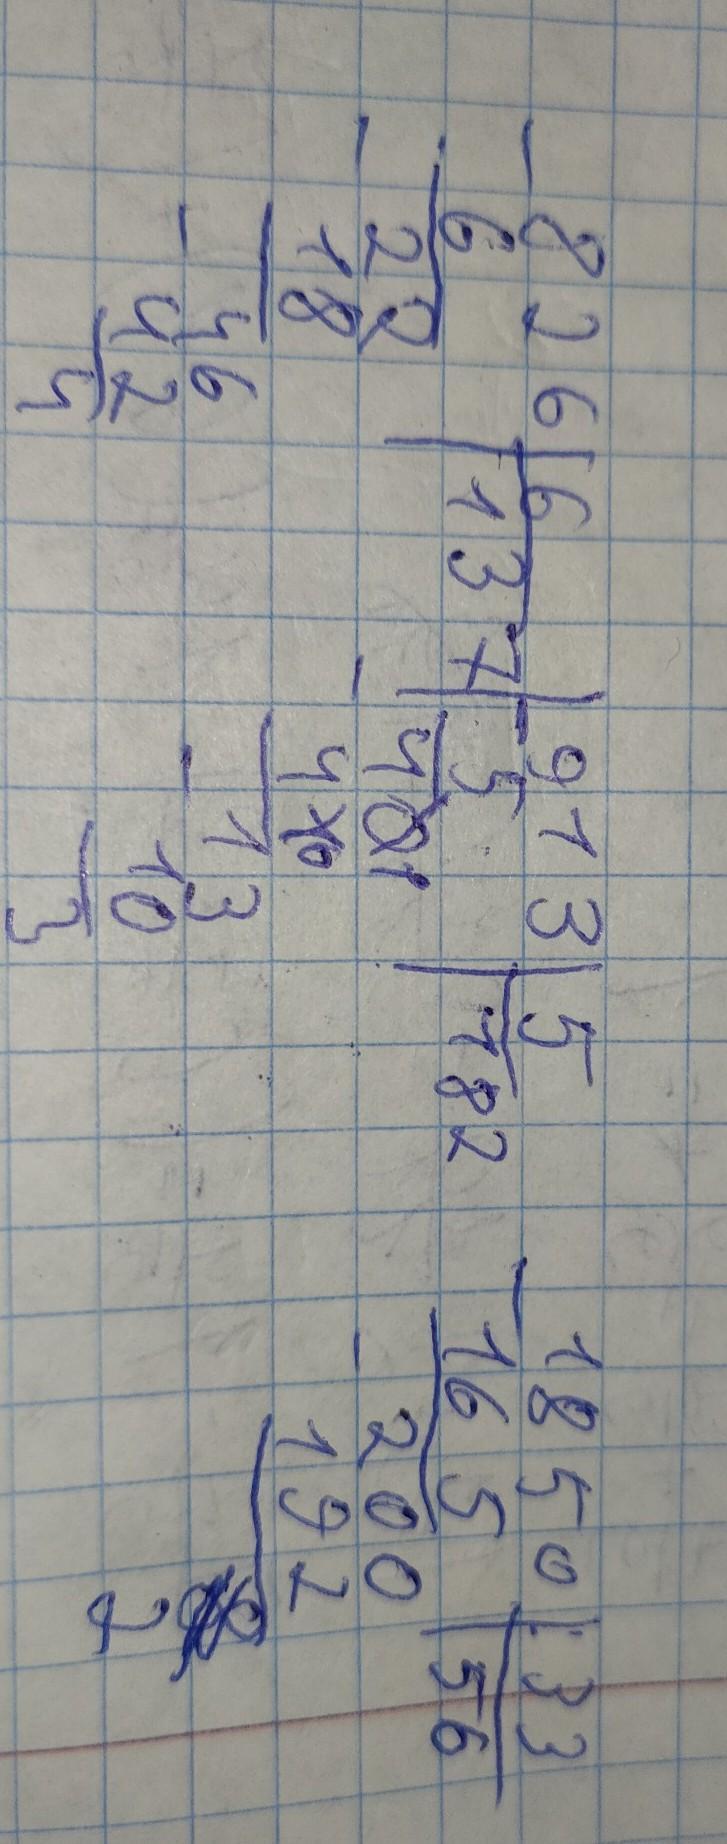 - 826 | 6
6 | 137
- 22
18
- 46
42
4
- 913 | 5
5 | 182
- 41
40
- 13
10
3
- 1850 | 33
165 | 56
- 200
192
2